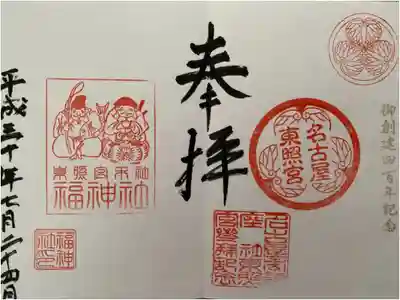 御創建四百年記念
名古屋
東照宮
奉拝
東照宮末社
福神社
福神
社印
平成三十年七月二十四日